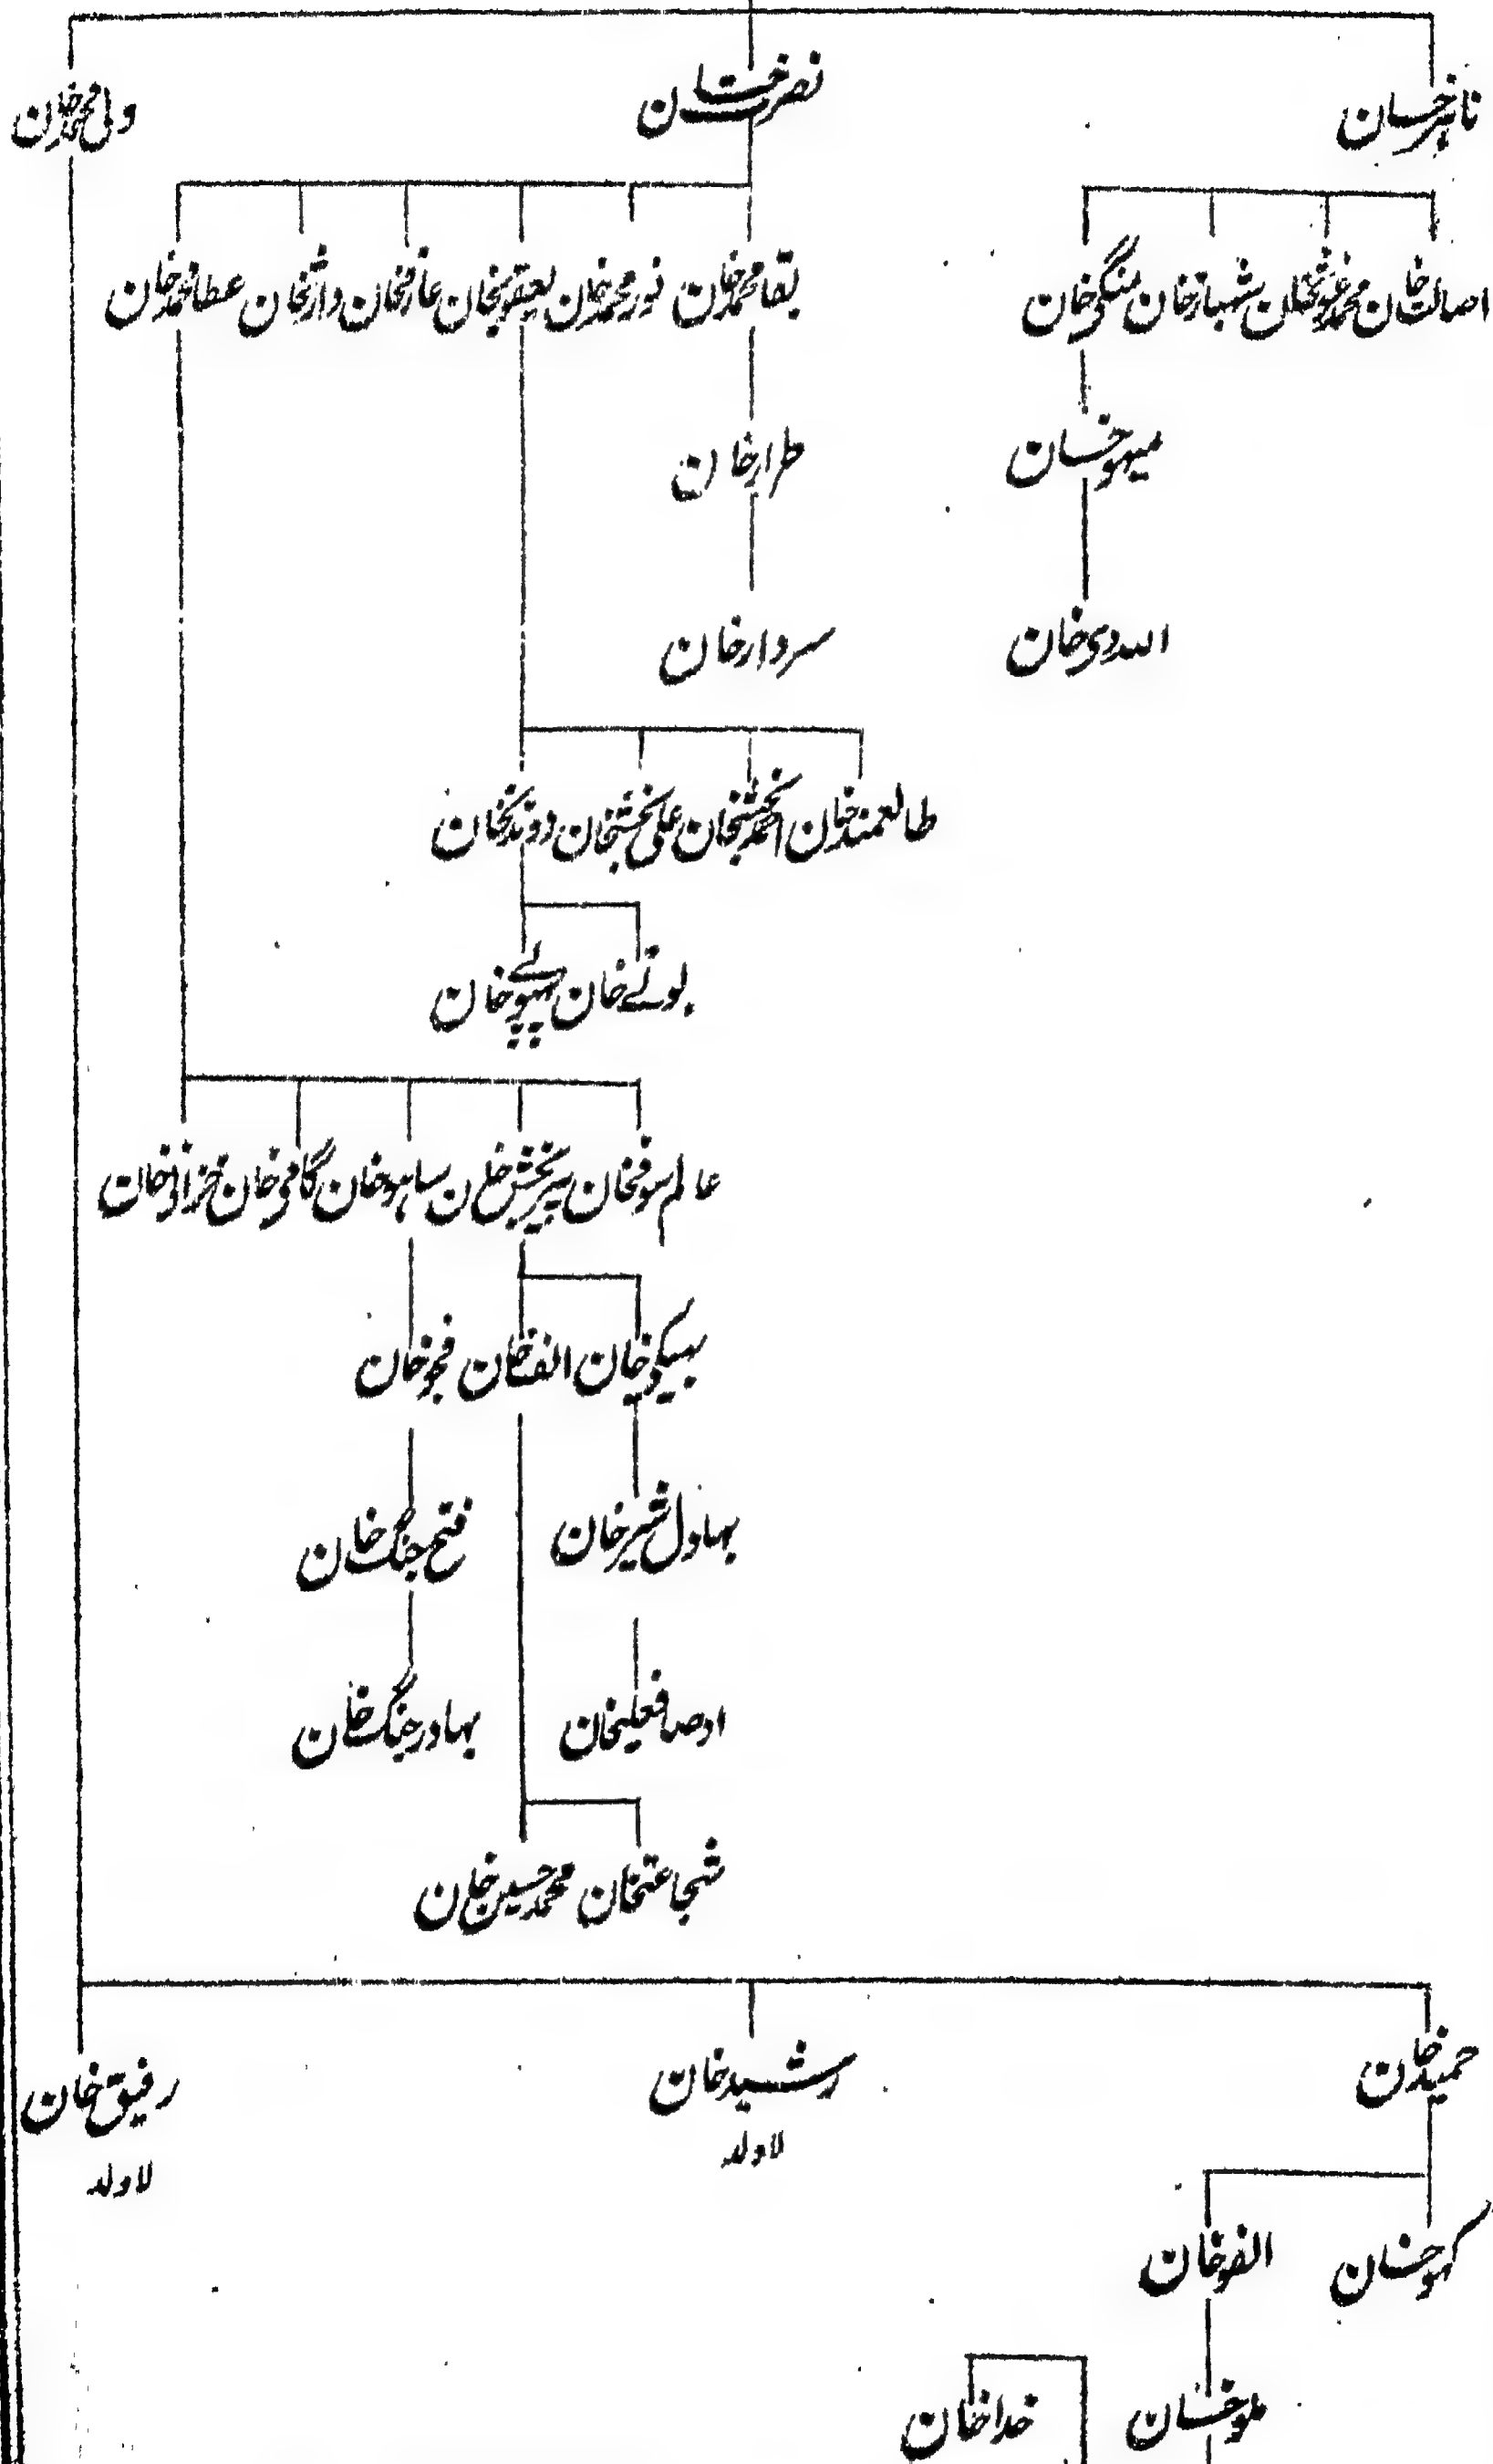 ناہر خان نصرت خان ولی محمد خان
اصالت خان محمد غوث خان شہباز خان منگی خان بقا محمد خان نور محمد خان یعقوب خان عارف خان وارث خان عطا محمد خان
طرار خان میہو خان
سردار خان اللہ دی خان
طالعمند خان احمد بخش خان علی بخش خان دوندیخان
بوٹے خان پہیپو خان
عالم سوفخان پیر بخش خان ساہو خان گامی خان
بہیکو خان الف خان فجو خان
بہاول شیر خان فتح جنگ خان
اوصاف علیخان بہادر جنگ خان
شجاعتخان محمد حسین خان
حمید خان رشید خان رفیق خان
لاولد لاولد
الفو خان
ملو خان خدا خان